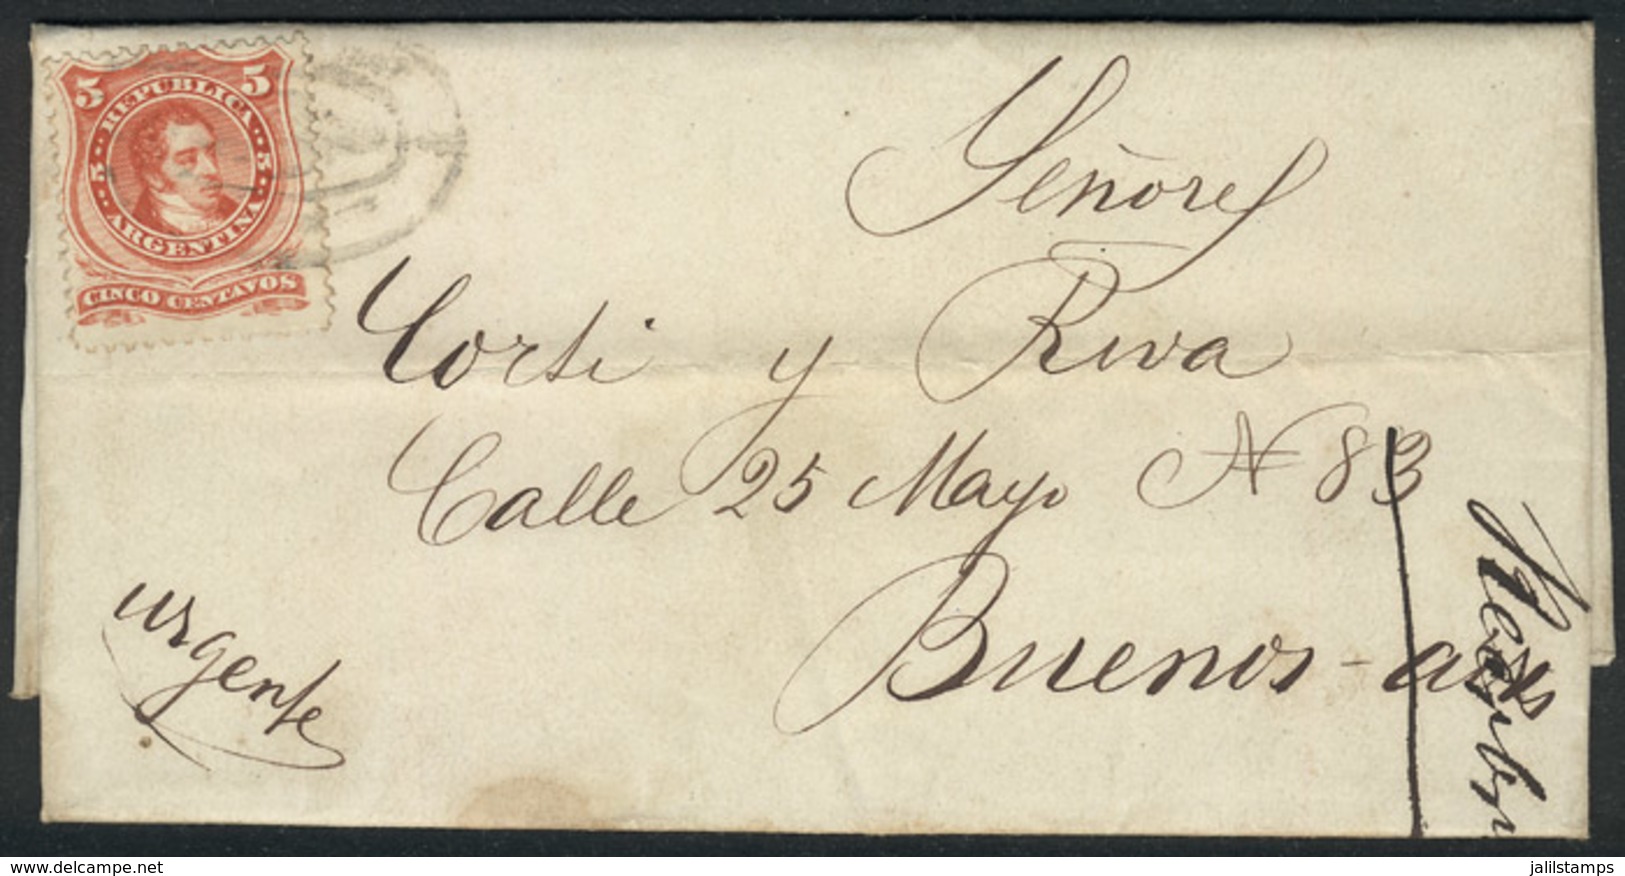 5 5
REPUBLICA
5 5
ARGENTINA
CINCO CENTAVOS
Señores
Corti y Riva
Calle 25 Mayo N 83
Buenos-ais
urgente
delcampe.net
jalilstamps